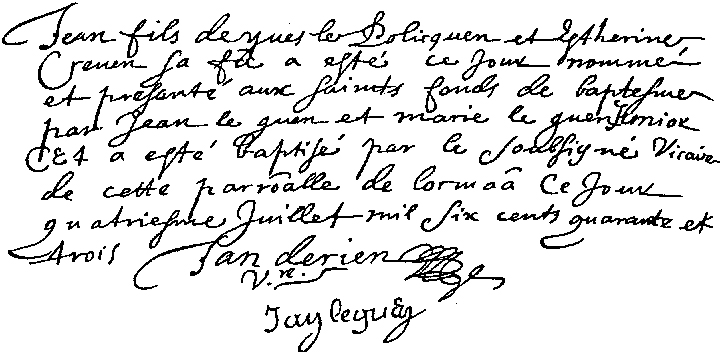 Jean fils de yves le Bolicquen et Katherine
Creven sa fe a esté ce Jour nommé
et presanté aux saints fonds de baptesme
par Jean le guen et marie le guen Junior
Et a esté baptisé par le soubsigné Vicaire
de cette parroalle de locmaâ Ce Jour
quatriesme Juillet mil six cents quarante et
trois Jan derien
V.re